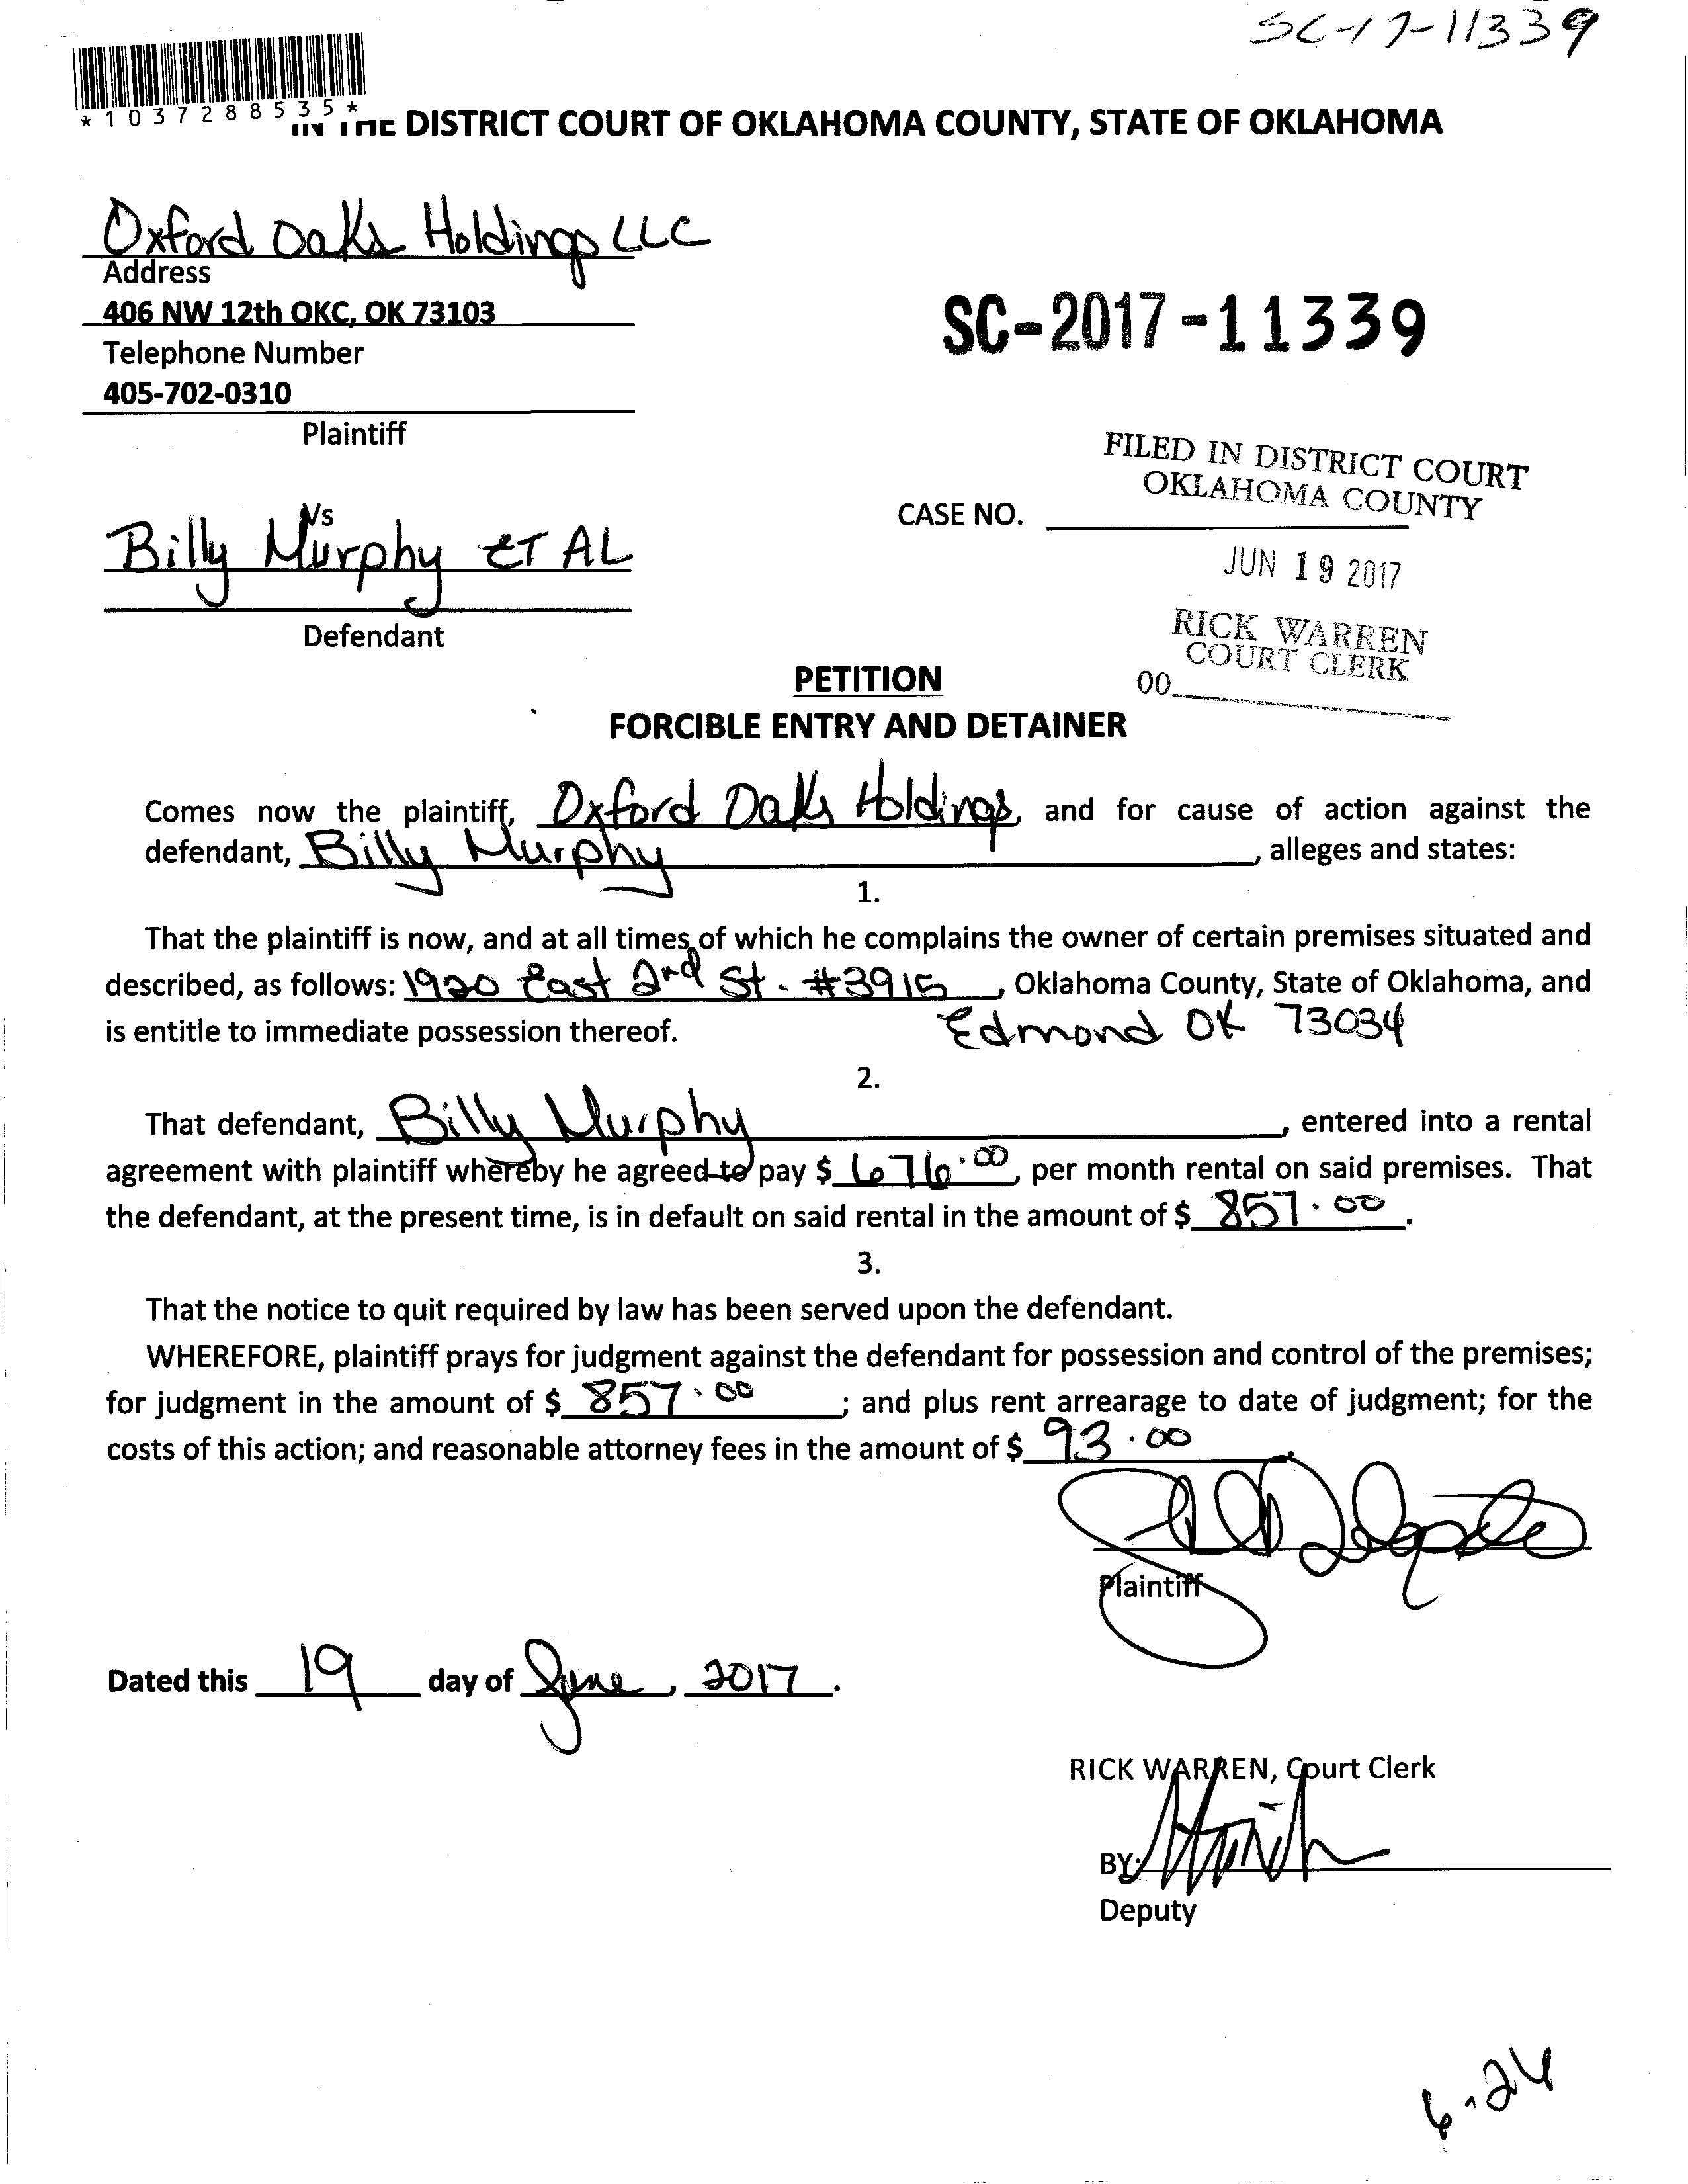 SC-17-11339
*1037288535*
IN THE DISTRICT COURT OF OKLAHOMA COUNTY, STATE OF OKLAHOMA
Oxford Oaks Holdings LLC
Address
406 NW 12th OKC, OK 73103
Telephone Number
405-702-0310
Plaintiff
SC-2017-11339
FILED IN DISTRICT COURT
OKLAHOMA COUNTY
Vs
CASE NO.
Billy Murphy ET AL
JUN 19 2017
Defendant
RICK WARREN
COURT CLERK
00
PETITION
FORCIBLE ENTRY AND DETAINER
Comes now the plaintiff, Oxford Oaks Holdings, and for cause of action against the
defendant, Billy Murphy, alleges and states:
1.
That the plaintiff is now, and at all times of which he complains the owner of certain premises situated and
described, as follows: 1920 East 2nd St. #3915, Oklahoma County, State of Oklahoma, and
is entitle to immediate possession thereof. Edmond OK 73034
2.
That defendant, Billy Murphy, entered into a rental
agreement with plaintiff whereby he agreed to pay $ 676.00, per month rental on said premises. That
the defendant, at the present time, is in default on said rental in the amount of $ 857.00.
3.
That the notice to quit required by law has been served upon the defendant.
WHEREFORE, plaintiff prays for judgment against the defendant for possession and control of the premises;
for judgment in the amount of $ 857.00; and plus rent arrearage to date of judgment; for the
costs of this action; and reasonable attorney fees in the amount of $ 93.00.
Plaintiff
Dated this 19 day of June, 2017.
RICK WARREN, Court Clerk
BY:
Deputy
6-24